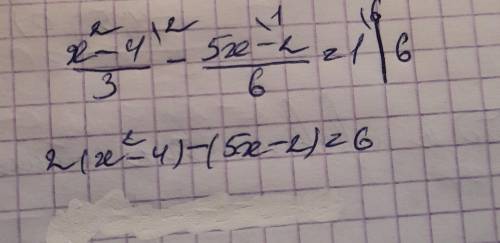 (x² - 4)/3 \2 - (5x - 2)/6 \1 = 1 \6 | 6
2(x² - 4) - (5x - 2) = 6